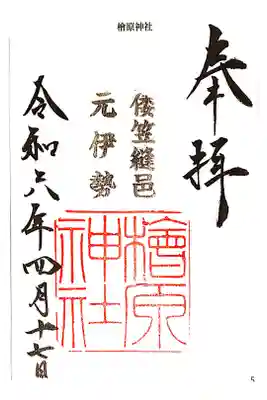 檜原神社
奉拝
倭笠縫邑
元伊勢
檜原
神社
令和六年四月十七日
5